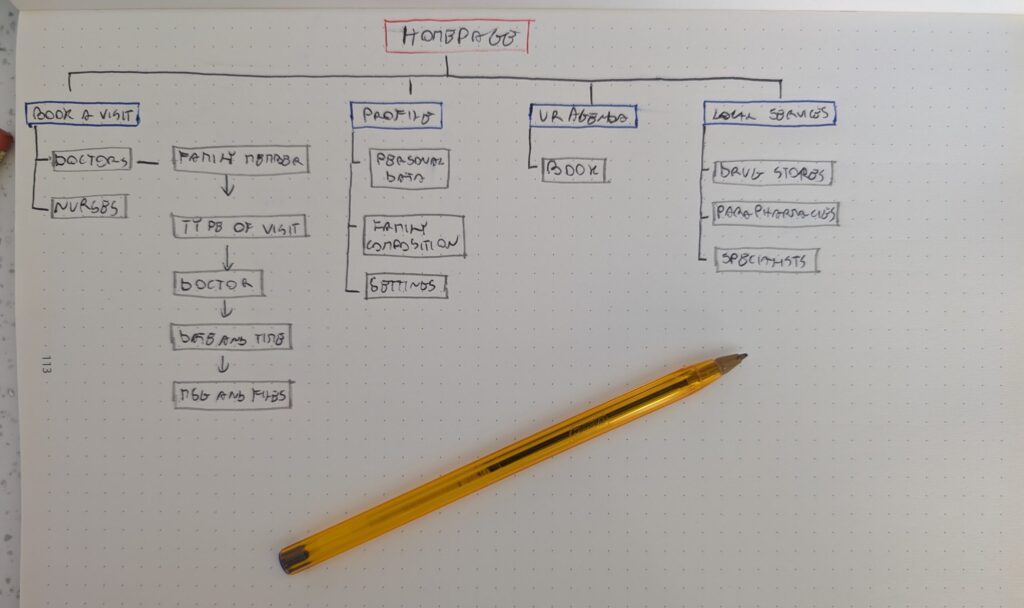 HOMEPAGE
BOOK A VISIT
DOCTORS
NURSES
FAMILY MEMBER
TYPE OF VISIT
DOCTOR
DATE AND TIME
MSG AND FILES
PROFILE
PERSONAL
DATA
FAMILY
COMPOSITION
SETTINGS
UR AGENDA
BOOK
LOCAL SERVICES
DRUG STORES
PARAPHARMACIES
SPECIALISTS
113